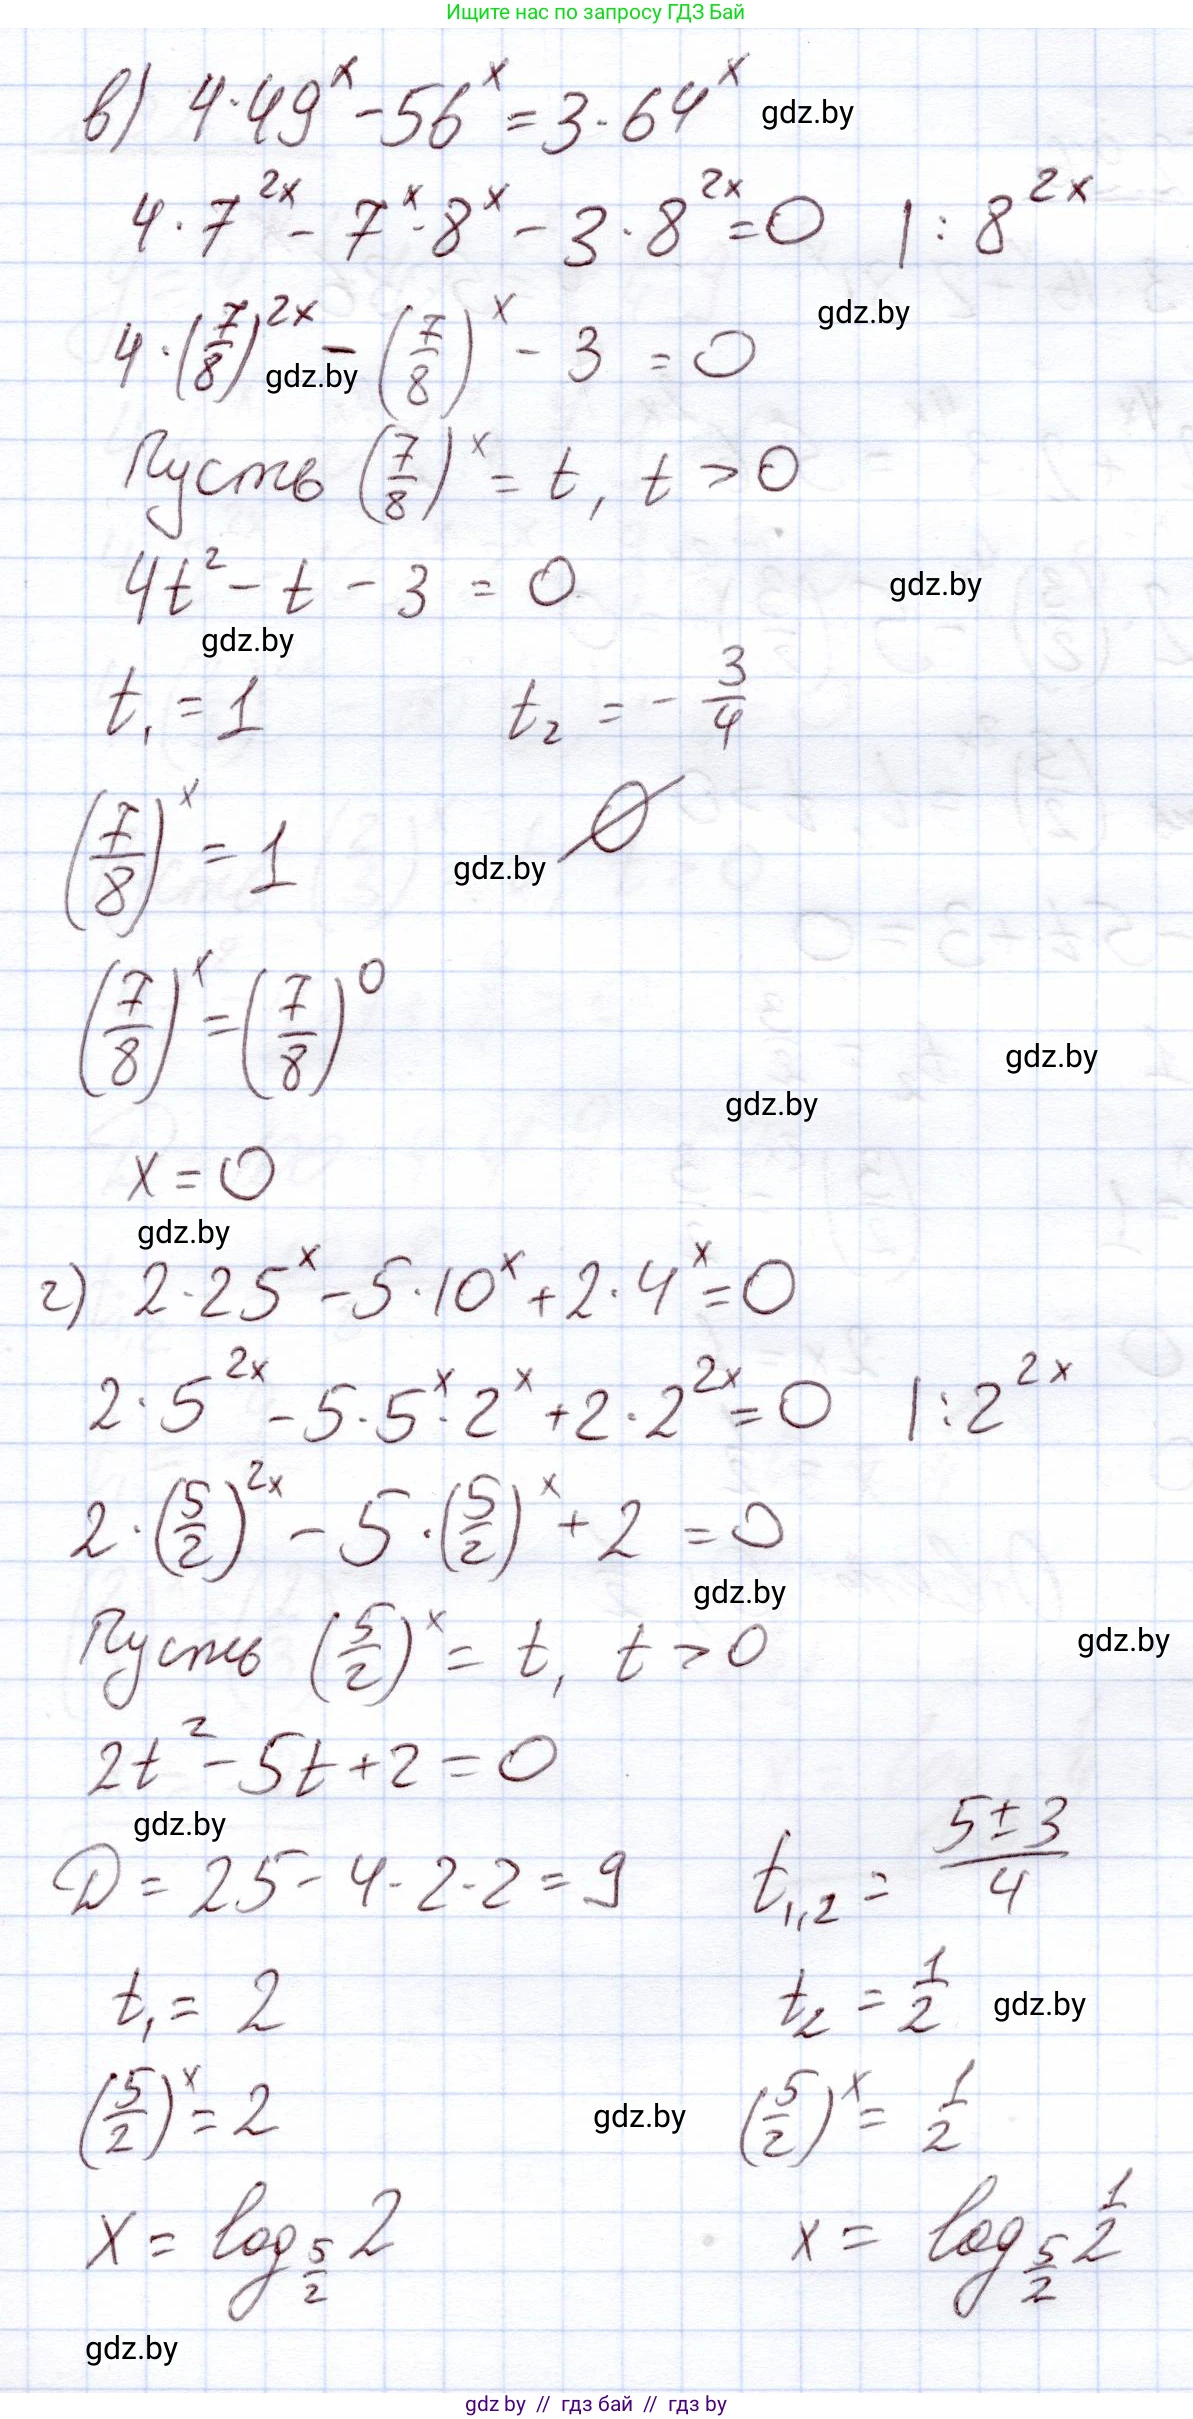 Ищите нас по запросу ГДЗ Бай
в) 4·49^x - 56^x = 3·64^x gdz.by
4·7^{2x} - 7^x·8^x - 3·8^{2x} = 0 |:8^{2x}
gdz.by
4·(7/8)^{2x} - (7/8)^x - 3 = 0
gdz.by
Пусть (7/8)^x = t, t > 0
4t² - t - 3 = 0 gdz.by
gdz.by
t₁ = 1 t₂ = -3/4
(7/8)^x = 1 gdz.by ∅
(7/8)^x = (7/8)^0
gdz.by
gdz.by
x = 0
gdz.by
г) 2·25^x - 5·10^x + 2·4^x = 0
2·5^{2x} - 5·5^x·2^x + 2·2^{2x} = 0 |:2^{2x}
2·(5/2)^{2x} - 5·(5/2)^x + 2 = 0
gdz.by
Пусть (5/2)^x = t, t > 0 gdz.by
2t² - 5t + 2 = 0
gdz.by
D = 25 - 4·2·2 = 9 t₁,₂ = (5±3)/4
t₁ = 2 t₂ = 1/2 gdz.by
(5/2)^x = 2 gdz.by (5/2)^x = 1/2
x = log_{5/2} 2 x = log_{5/2} 1/2
gdz.by
gdz by // гдз бай // гдз by